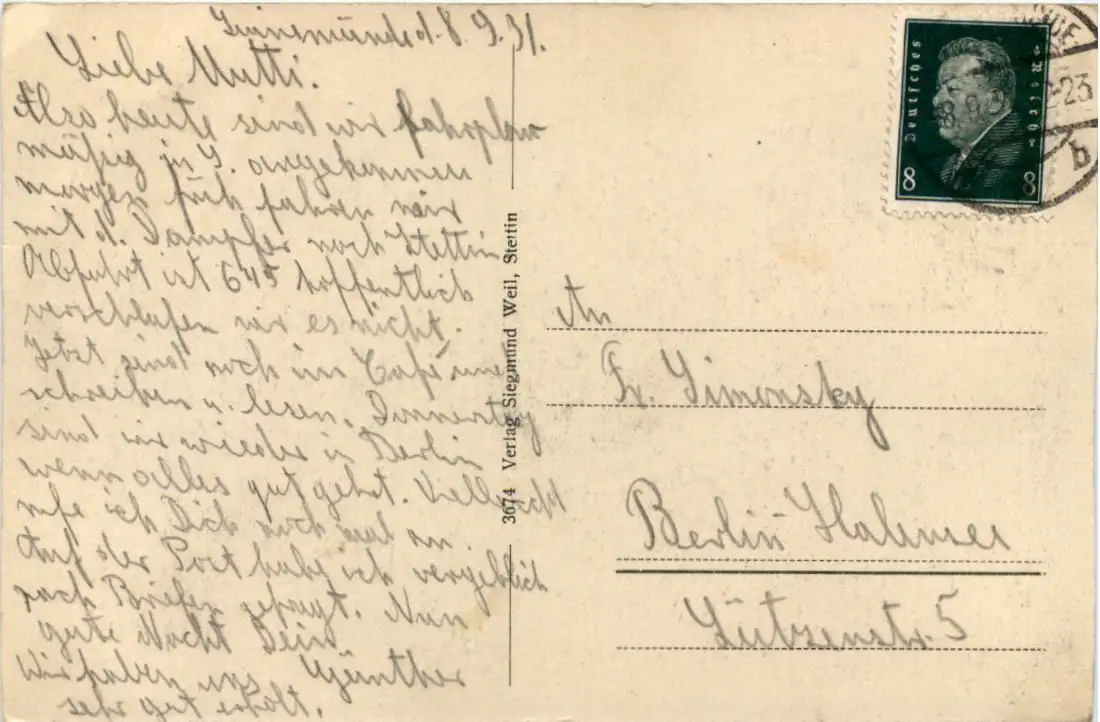 Swinemünde d. 8.9.31.
Liebe Mutti.
Also heute sind wir fahrplan
mäßig in S. angekommen
morgen früh fahren wir
mit d. Dampfer nach Stettin
Abfahrt ist 645 hoffentlich
verschlafen wir es nicht.
Jetzt sind noch im Café
schreiben u. lesen. Donnerstag
sind wir wieder in Berlin
wenn alles gut geht. Vielleicht
rufe ich Dich noch mal an.
Auf der Post habe ich vergeblich
nach Briefen gefragt. Nun
gute Nacht Dein
Günther
Wir haben uns
sehr gut erholt.
3674 Verlag Siegmund Weil, Stettin
Deutsches Reich
8 8
b
An
Fr. Simonsky
Berlin-Halensee
Lützenstr. 5